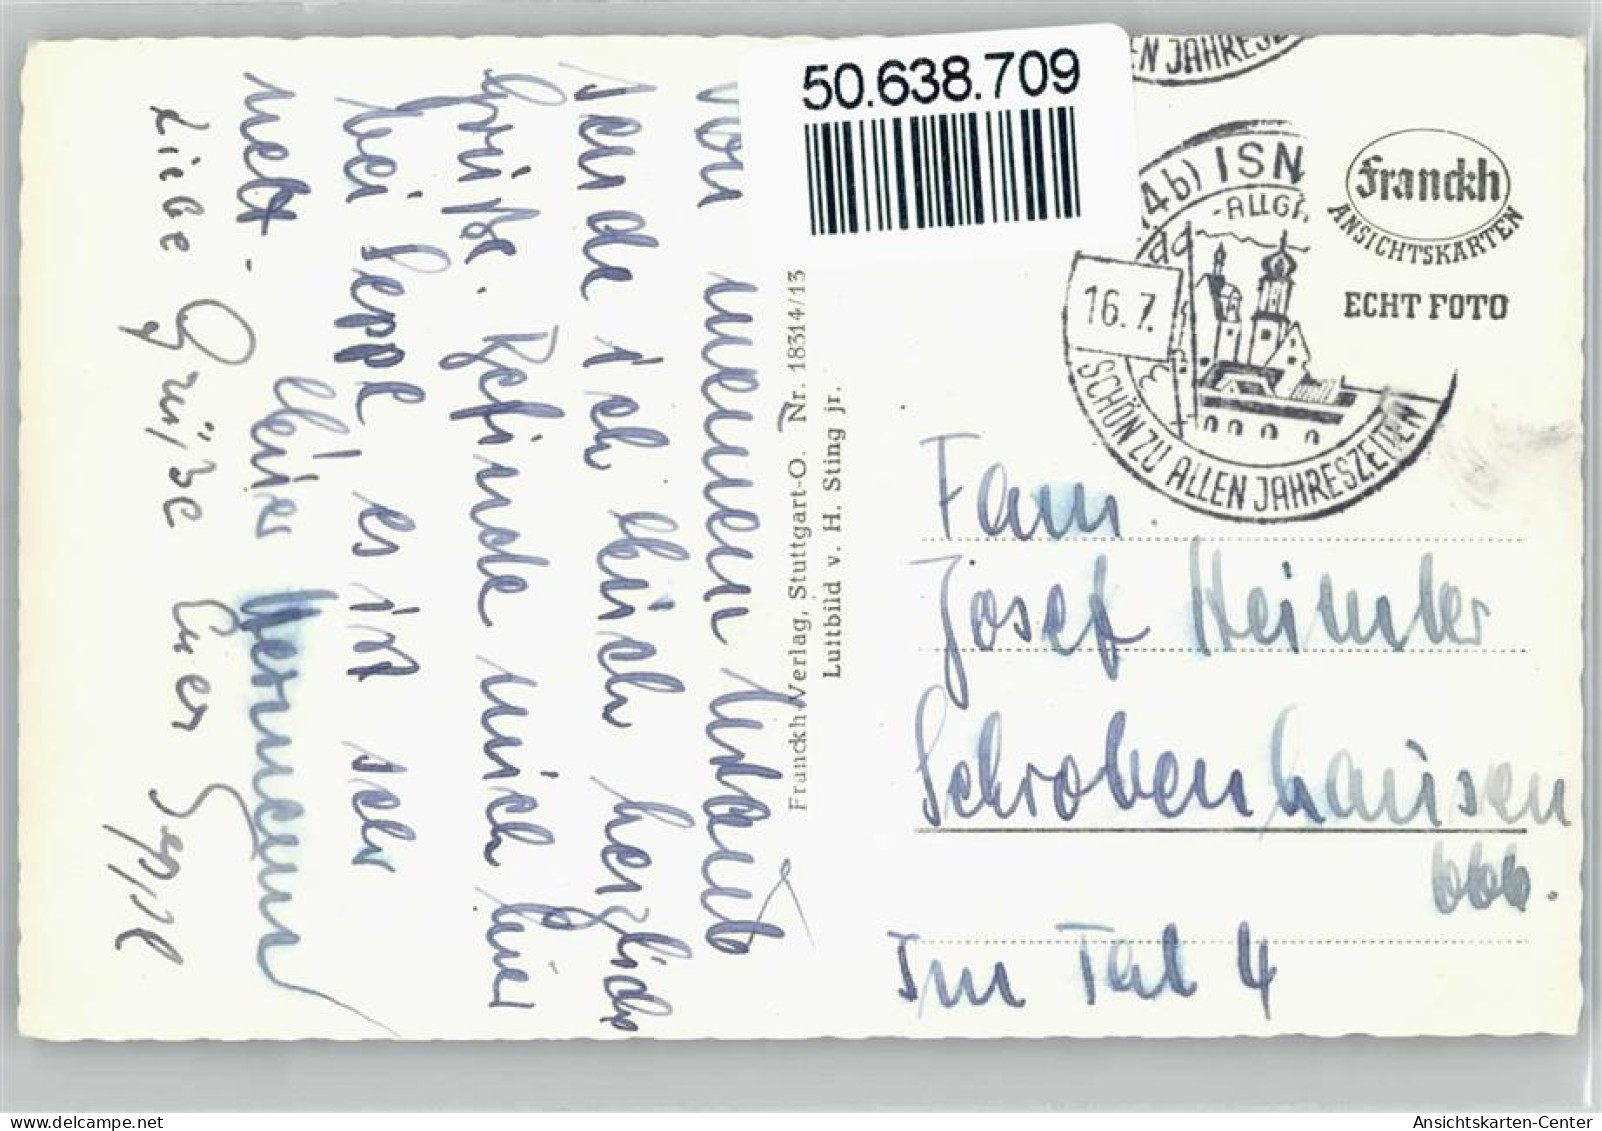 50.638.709
EN JAHRESZ
(14b) ISN
-ALLG
16.7.
SCHÖN ZU ALLEN JAHRESZEITEN
Franckh
ANSICHTSKARTEN
ECHT FOTO
Von meinem Urlaub
sende ich Euch herzliche
Grüße. Befinde mich hier
bei Seppl es ist sehr
nett. Euer Hermann
Liebe Grüße Euer Seppl
Franckh-Verlag, Stuttgart-O. Nr. 18314/13
Luftbild v. H. Sting jr.
Fam.
Josef
Schrobenhausen
Obb.
Im Tal 4
Ansichtskarten-Center